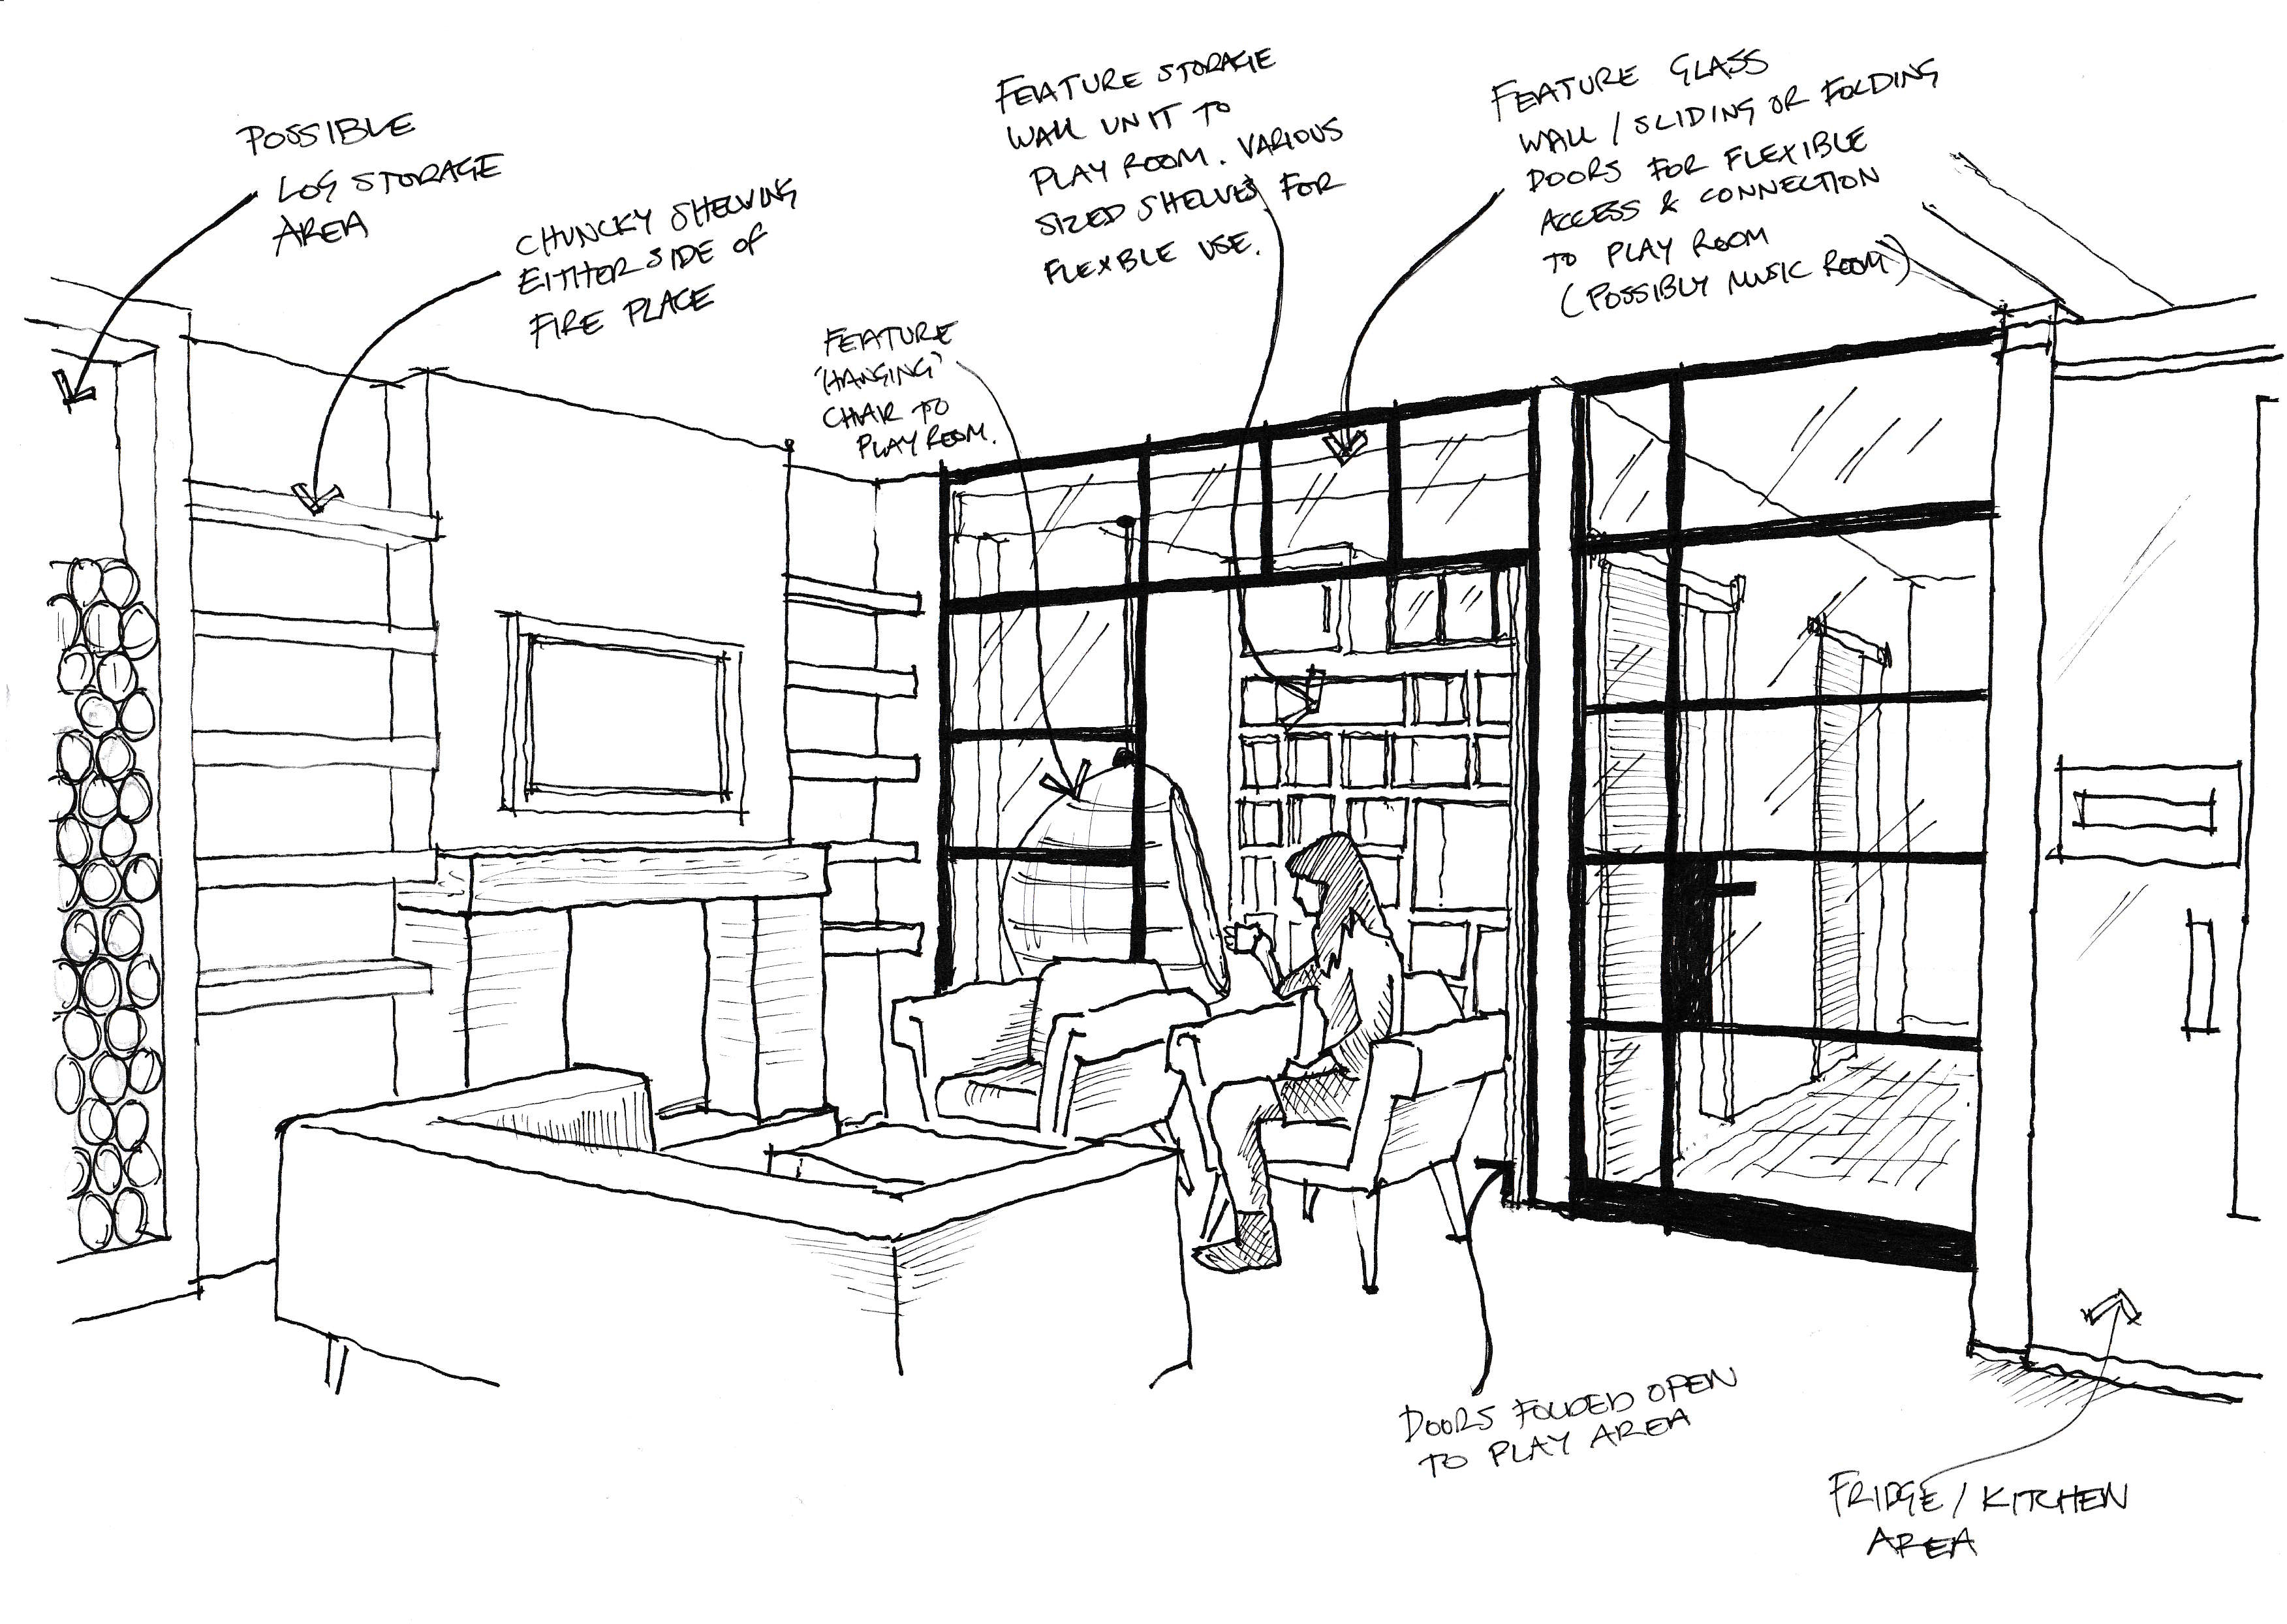 POSSIBLE
LOG STORAGE
AREA
CHUNCKY SHELVING
EITHER SIDE OF
FIRE PLACE
FEATURE
'HANGING'
CHAIR TO
PLAY ROOM.
FEATURE STORAGE
WALL UNIT TO
PLAY ROOM. VARIOUS
SIZED SHELVES FOR
FLEXIBLE USE.
FEATURE GLASS
WALL / SLIDING OR FOLDING
DOORS FOR FLEXIBLE
ACCESS & CONNECTION
TO PLAY ROOM
(POSSIBLY MUSIC ROOM)
DOORS FOLDED OPEN
TO PLAY AREA
FRIDGE / KITCHEN
AREA